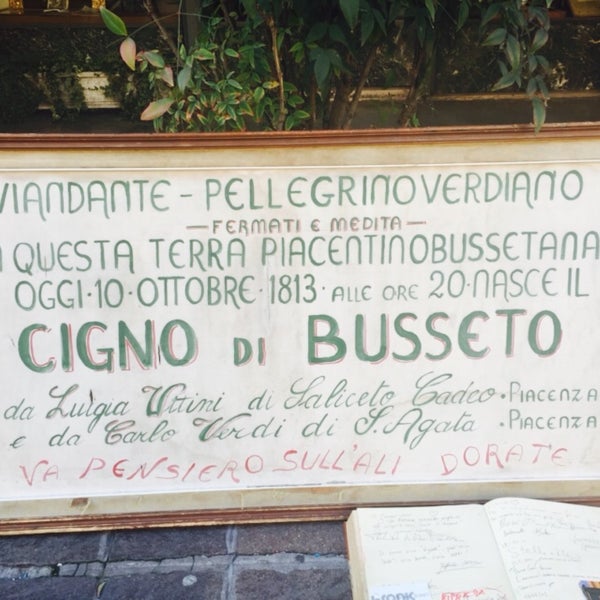 VIANDANTE - PELLEGRINO VERDIANO
- FERMATI E MEDITA -
QUESTA TERRA PIACENTINOBUSSETANA
OGGI·10·OTTOBRE·1813· ALLE ORE 20·NASCE IL
CIGNO DI BUSSETO
da Luigia Uttini di Saliceto Cadeo·PIACENZA
e da Carlo Verdi di S. Agata ·PIACENZA
VA PENSIERO SULL'ALI DORATE